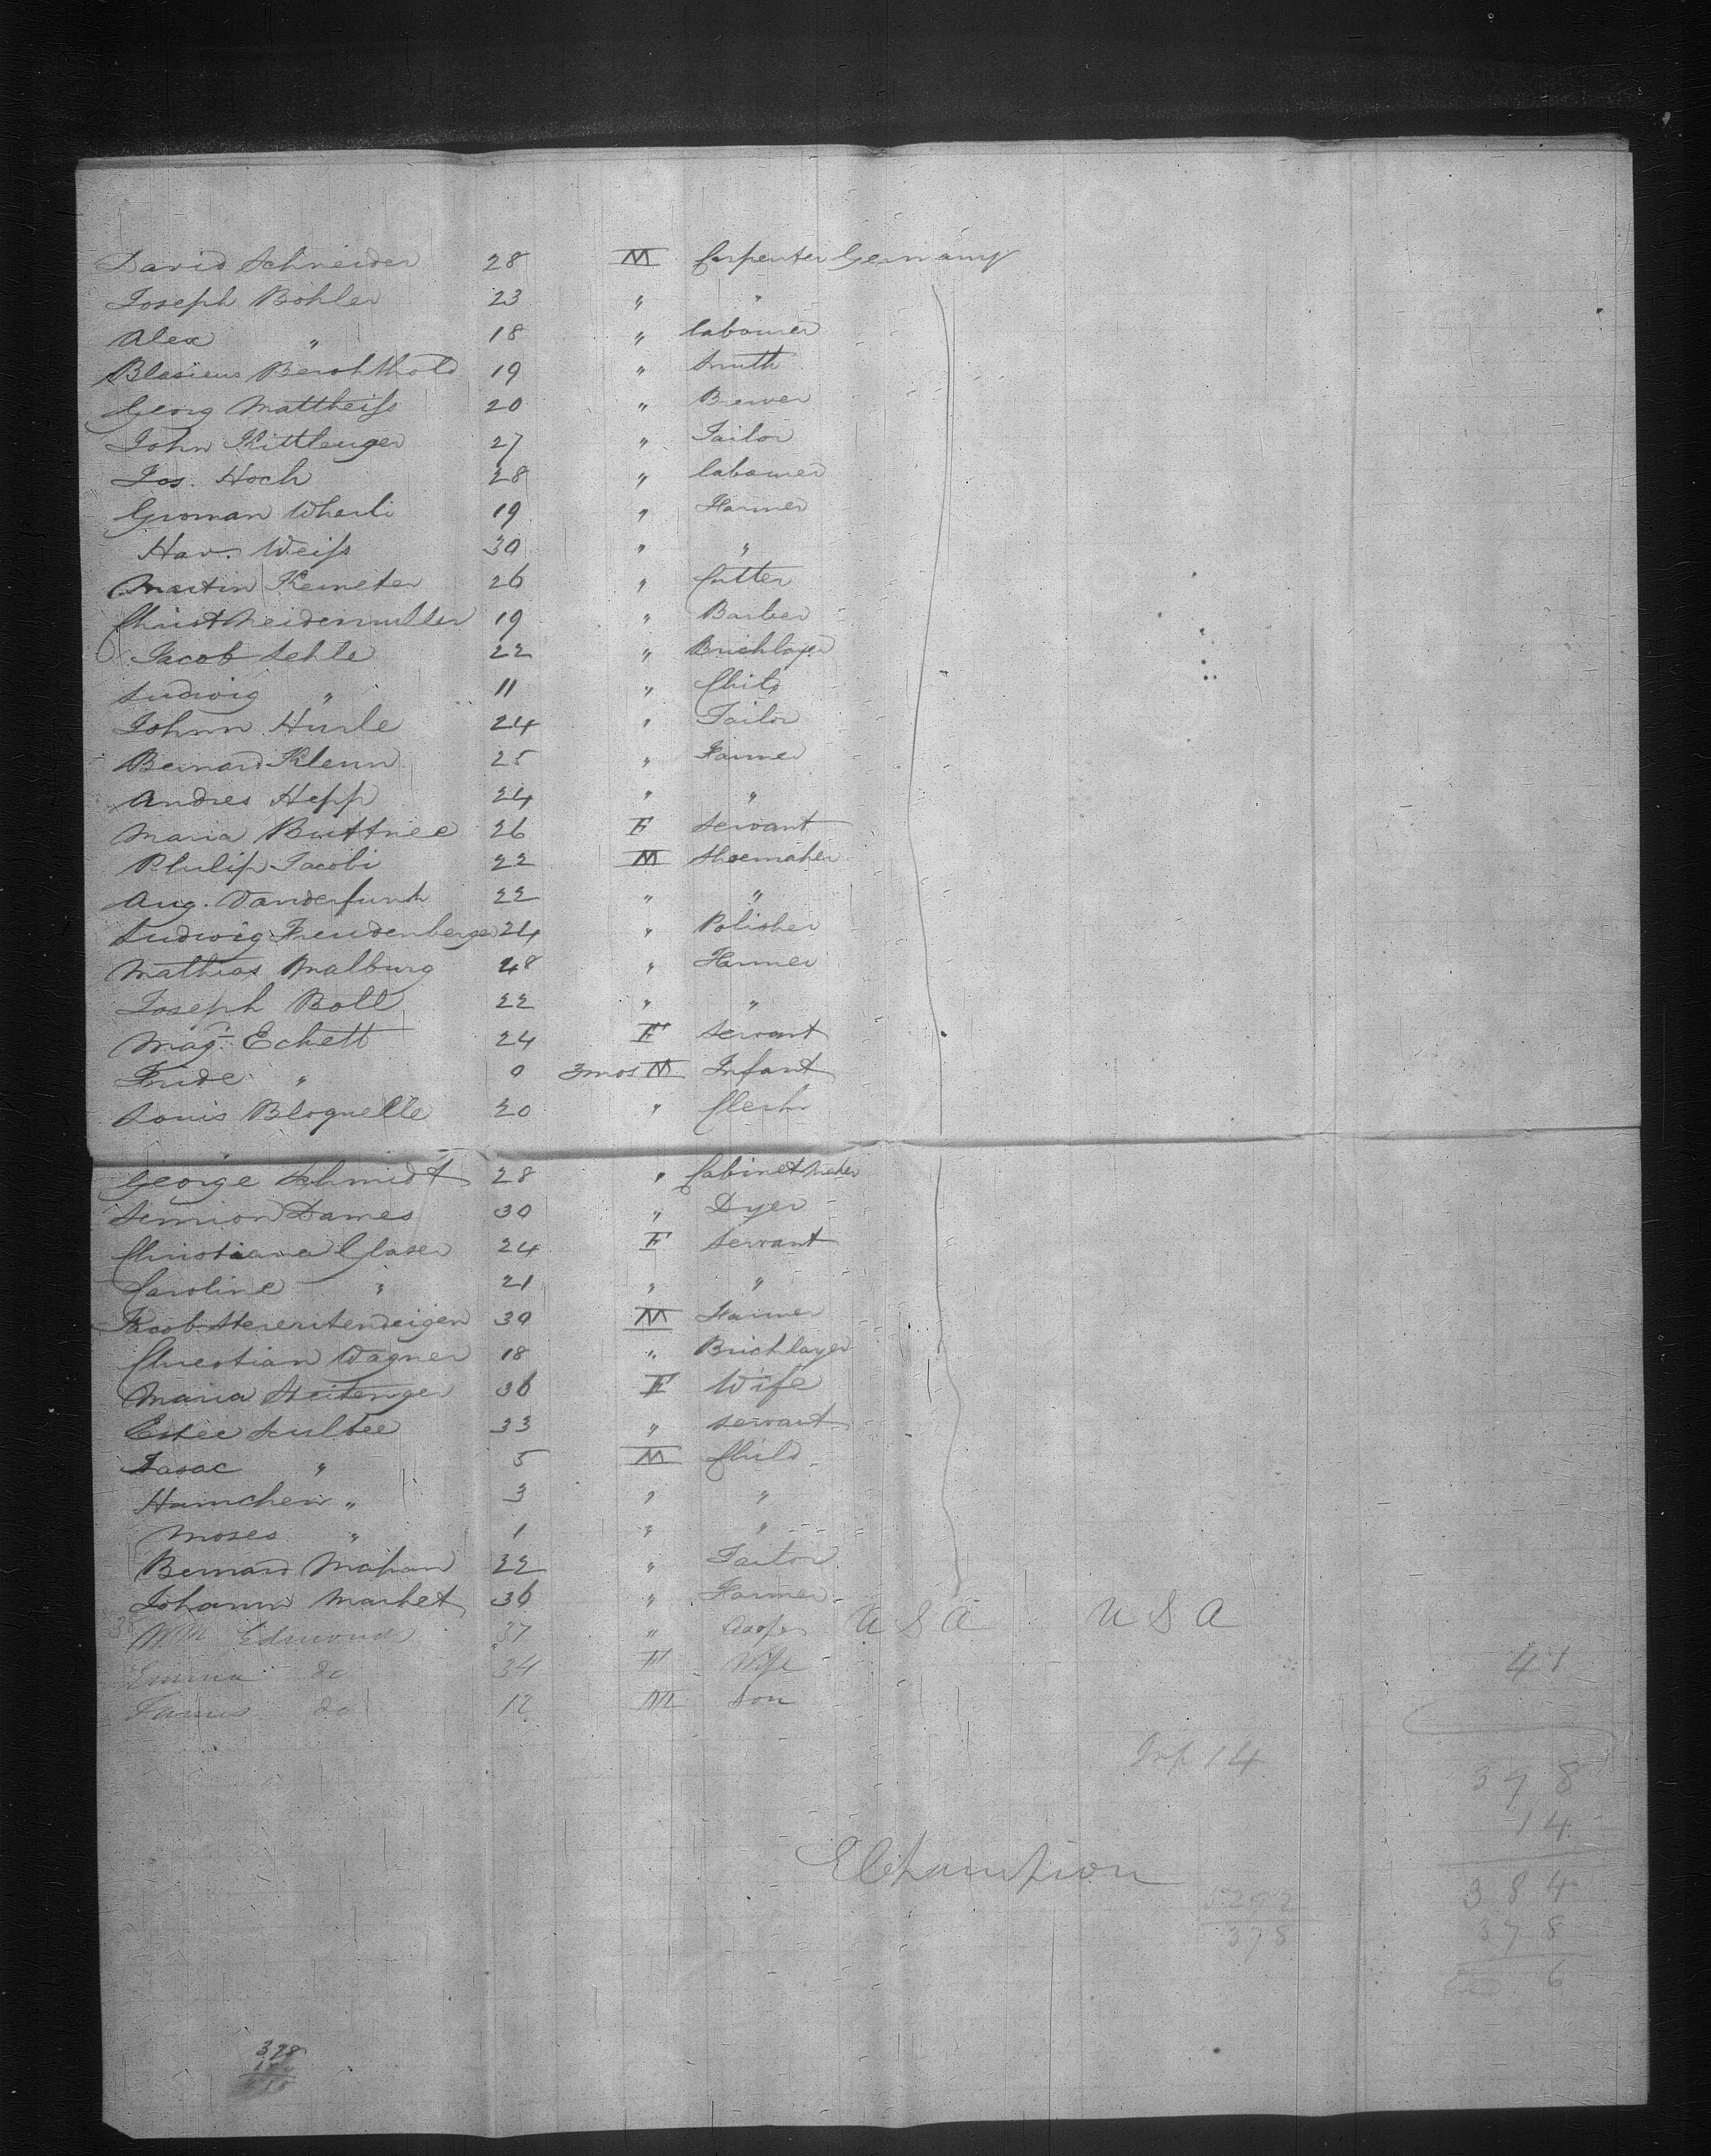 David Schneider 28 M Carpenter Germany
Joseph Bohler 23 " "
Alex " 18 " labourer
Blasieus Berohthold 19 " Smith
Georg Mattheiss 20 " Brewer
John Kittlenger 27 " Tailor
Jos. Hoch 28 " labourer
Groman Wherli 19 " Farmer
Hav. Weiss 30 " "
Martin Kemeter 26 " Cutter
Christ Neidenmuller 19 " Barber
Jacob Sehle 22 " Bricklayer
Ludwig " 11 " Child
Johnn Hurle 24 " Tailor
Bernard Klenn 25 " Farmer
Andres Hepp 24 " "
Maria Buttnee 26 F Servant
Philip Jacobi 22 M Shoemaker
Aug. Vanderfunk 22 " "
Ludwig Freudenberger 24 " Polisher
Mathias Malburg 48 " Farmer
Joseph Boll 22 " "
Mag. Eckett 24 F Servant
Fride " 0 3mos M Infant
Louis Bloquelle 20 " Clerk
George Schmidt 28 " Cabinet Maker
Simion Dames 30 " Dyer
Christiana Glaser 24 F Servant
Caroline " 21 " "
Jacob 30 M Farmer
Christian Wagner 18 " Bricklayer
Maria Steitenger 36 F Wife
Estee Sultee 33 " Servant
Isaac " 5 M Child
Hamchen " 3 " "
Moses " 1 " "
Bernard 22 " Tailor
Johann Market 36 " Farmer
Wm Edmonds 37 " USA USA
Emma do 34 F Wife
41
James do 12 M Son
Inf 14
378
14
E Champion
384
5292
378
378
6
378